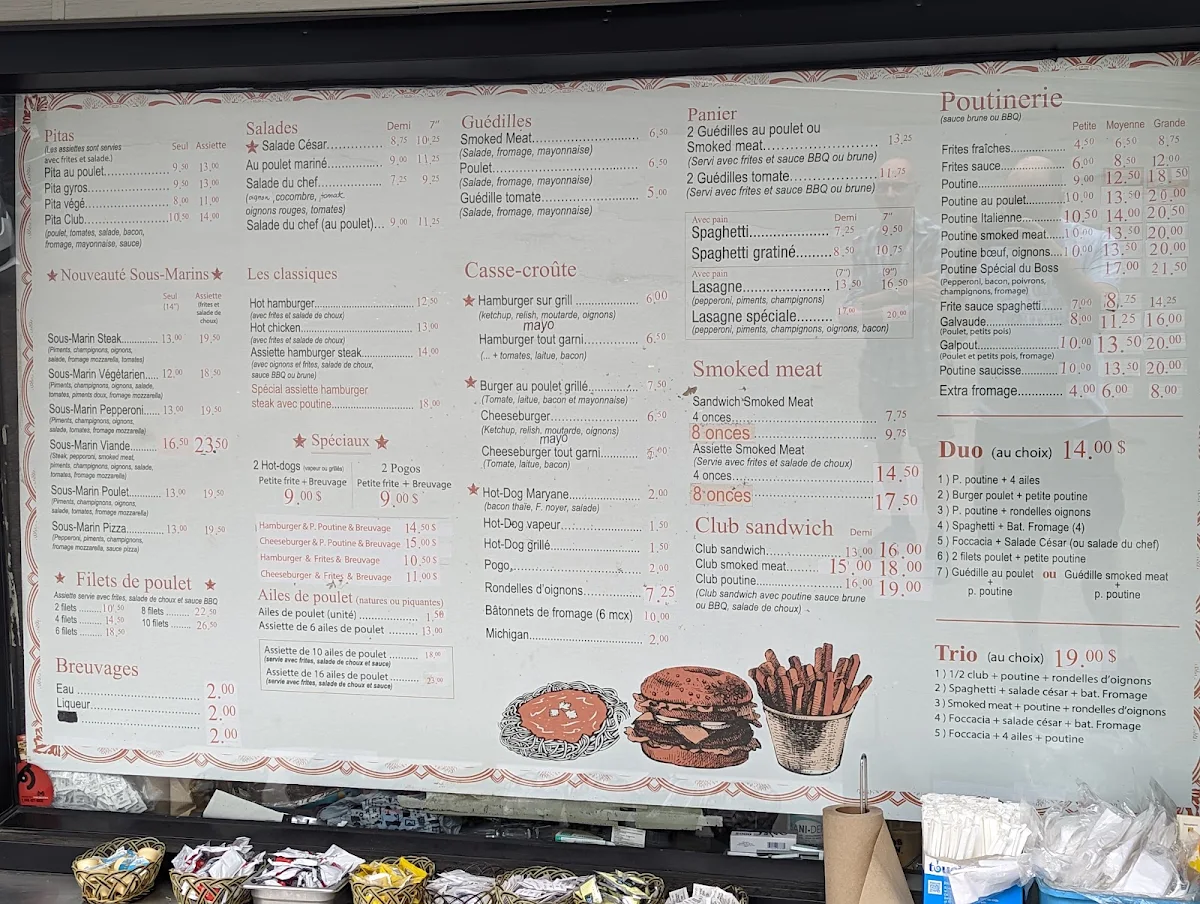 Pitas
Seul Assiette
(Les assiettes sont servies
avec frites et salade.)
Pita au poulet 9,50 13,00
Pita gyros 9,50 13,00
Pita végé 8,00 11,00
Pita Club 10,50 14,00
(poulet, tomates, salade, bacon,
fromage, mayonnaise, sauce)
★ Nouveauté Sous-Marins ★
Seul (14") Assiette (frites et salade de choux)
Sous-Marin Steak 13,00 19,50
(Piments, champignons, oignons,
salade, fromage mozzarella, tomates)
Sous-Marin Végétarien 12,00 18,50
(Piments, champignons, oignons, salade,
tomates, piments doux, fromage mozzarella)
Sous-Marin Pepperoni 13,00 19,50
(Piments, champignons, oignons,
salade, tomates, fromage mozzarella)
Sous-Marin Viande 16.50 23.50
(Steak, pepperoni, smoked meat,
piments, champignons, oignons, salade,
tomates, fromage mozzarella)
Sous-Marin Poulet 13,00 19,50
(Piments, champignons, oignons,
salade, tomates, fromage mozzarella)
Sous-Marin Pizza 13,00 19,50
(Pepperoni, piments, champignons,
fromage mozzarella, sauce pizza)
★ Filets de poulet ★
Assiette servie avec frites, salade de choux et sauce BBQ
2 filets 10,50 8 filets 22,50
4 filets 14,50 10 filets 26,50
6 filets 18,50
Breuvages
Eau 2.00
Liqueur 2.00
2.00
Salades
Demi 7"
★ Salade César 8,75 10,25
Au poulet mariné 9,00 11,25
Salade du chef 7,25 9,25
(oignon, cocombre, tomak,
oignons rouges, tomates)
Salade du chef (au poulet) 9,00 11,25
Les classiques
Hot hamburger 12,50
(avec frites et salade de choux)
Hot chicken 13,00
(avec frites et salade de choux)
Assiette hamburger steak 14,00
(avec oignons et frites, salade de choux,
sauce BBQ ou brune)
Spécial assiette hamburger
steak avec poutine 18,00
★ Spéciaux ★
2 Hot-dogs (vapeur ou grillés)
Petite frite + Breuvage
9.00 $
2 Pogos
Petite frite + Breuvage
9.00 $
Hamburger & P. Poutine & Breuvage 14.50 $
Cheeseburger & P. Poutine & Breuvage 15.00 $
Hamburger & Frites & Breuvage 10.50 $
Cheeseburger & Frites & Breuvage 11.00 $
Ailes de poulet (natures ou piquantes)
Ailes de poulet (unité) 1,50
Assiette de 6 ailes de poulet 13,00
Assiette de 10 ailes de poulet 18,00
(servie avec frites, salade de choux et sauce)
Assiette de 16 ailes de poulet 23,00
(servie avec frites, salade de choux et sauce)
Guédilles
Smoked Meat 6,50
(Salade, fromage, mayonnaise)
Poulet 6,50
(Salade, fromage, mayonnaise)
Guédille tomate 5,00
(Salade, fromage, mayonnaise)
Casse-croûte
★ Hamburger sur grill 6,00
(ketchup, relish, moutarde, oignons)
mayo
Hamburger tout garni 6,50
(... + tomates, laitue, bacon)
★ Burger au poulet grillé 7,50
(Tomate, laitue, bacon et mayonnaise)
Cheeseburger 6,50
(Ketchup, relish, moutarde, oignons)
mayo
Cheeseburger tout garni
(Tomate, laitue, bacon)
★ Hot-Dog Maryane 2,00
(bacon thaïe, F. noyer, salade)
Hot-Dog vapeur 1,50
Hot-Dog grillé 1,50
Pogo 2,00
Rondelles d'oignons 7,25
Bâtonnets de fromage (6 mcx) 10,00
Michigan 2,00
Panier
2 Guédilles au poulet ou
Smoked meat 13,25
(Servi avec frites et sauce BBQ ou brune)
2 Guédilles tomate 11.75
(Servi avec frites et sauce BBQ ou brune)
Avec pain Demi 7"
Spaghetti 7,25 9,50
Spaghetti gratiné 8,50 10,75
Avec pain (7") (9")
Lasagne 13,50 16,50
(pepperoni, piments, champignons)
Lasagne spéciale 17,00 20,00
(pepperoni, piments, champignons, oignons, bacon)
Smoked meat
Sandwich Smoked Meat
4 onces 7,75
8 onces 9,75
Assiette Smoked Meat
(Servie avec frites et salade de choux)
4 onces 14.50
8 onces 17.50
Club sandwich
Demi
Club sandwich 13,00 16.00
Club smoked meat 15,00 18.00
Club poutine 16,00 19.00
(Club sandwich avec poutine sauce brune
ou BBQ, salade de choux)
Poutinerie
(sauce brune ou BBQ)
Petite Moyenne Grande
Frites fraîches 4,50 6,50 8,75
Frites sauce 6,00 8,50 12,00
Poutine 9,00 12.50 18.50
Poutine au poulet 10,00 13.50 20.00
Poutine Italienne 10,50 14,00 20,50
Poutine smoked meat 10,00 13.50 20.00
Poutine bœuf, oignons 10,00 13.50 20.00
Poutine Spécial du Boss 17,00 21,50
(Pepperoni, bacon, poivrons,
champignons, fromage)
Frite sauce spaghetti 7,00 8,75 14,25
Galvaude 8,00 11,25 16,00
(Poulet, petits pois)
Galpout 10,00 13.50 20.00
(Poulet et petits pois, fromage)
Poutine saucisse 10,00 13.50 20.00
Extra fromage 4,00 6,00 8,00
Duo (au choix) 14.00 $
1 ) P. poutine + 4 ailes
2 ) Burger poulet + petite poutine
3 ) P. poutine + rondelles oignons
4 ) Spaghetti + Bat. Fromage (4)
5 ) Foccacia + Salade César (ou salade du chef)
6 ) 2 filets poulet + petite poutine
7 ) Guédille au poulet ou Guédille smoked meat
+ +
p. poutine p. poutine
Trio (au choix) 19.00 $
1 ) 1/2 club + poutine + rondelles d'oignons
2 ) Spaghetti + salade césar + bat. Fromage
3 ) Smoked meat + poutine + rondelles d'oignons
4 ) Foccacia + salade césar + bat. Fromage
5 ) Foccacia + 4 ailes + poutine